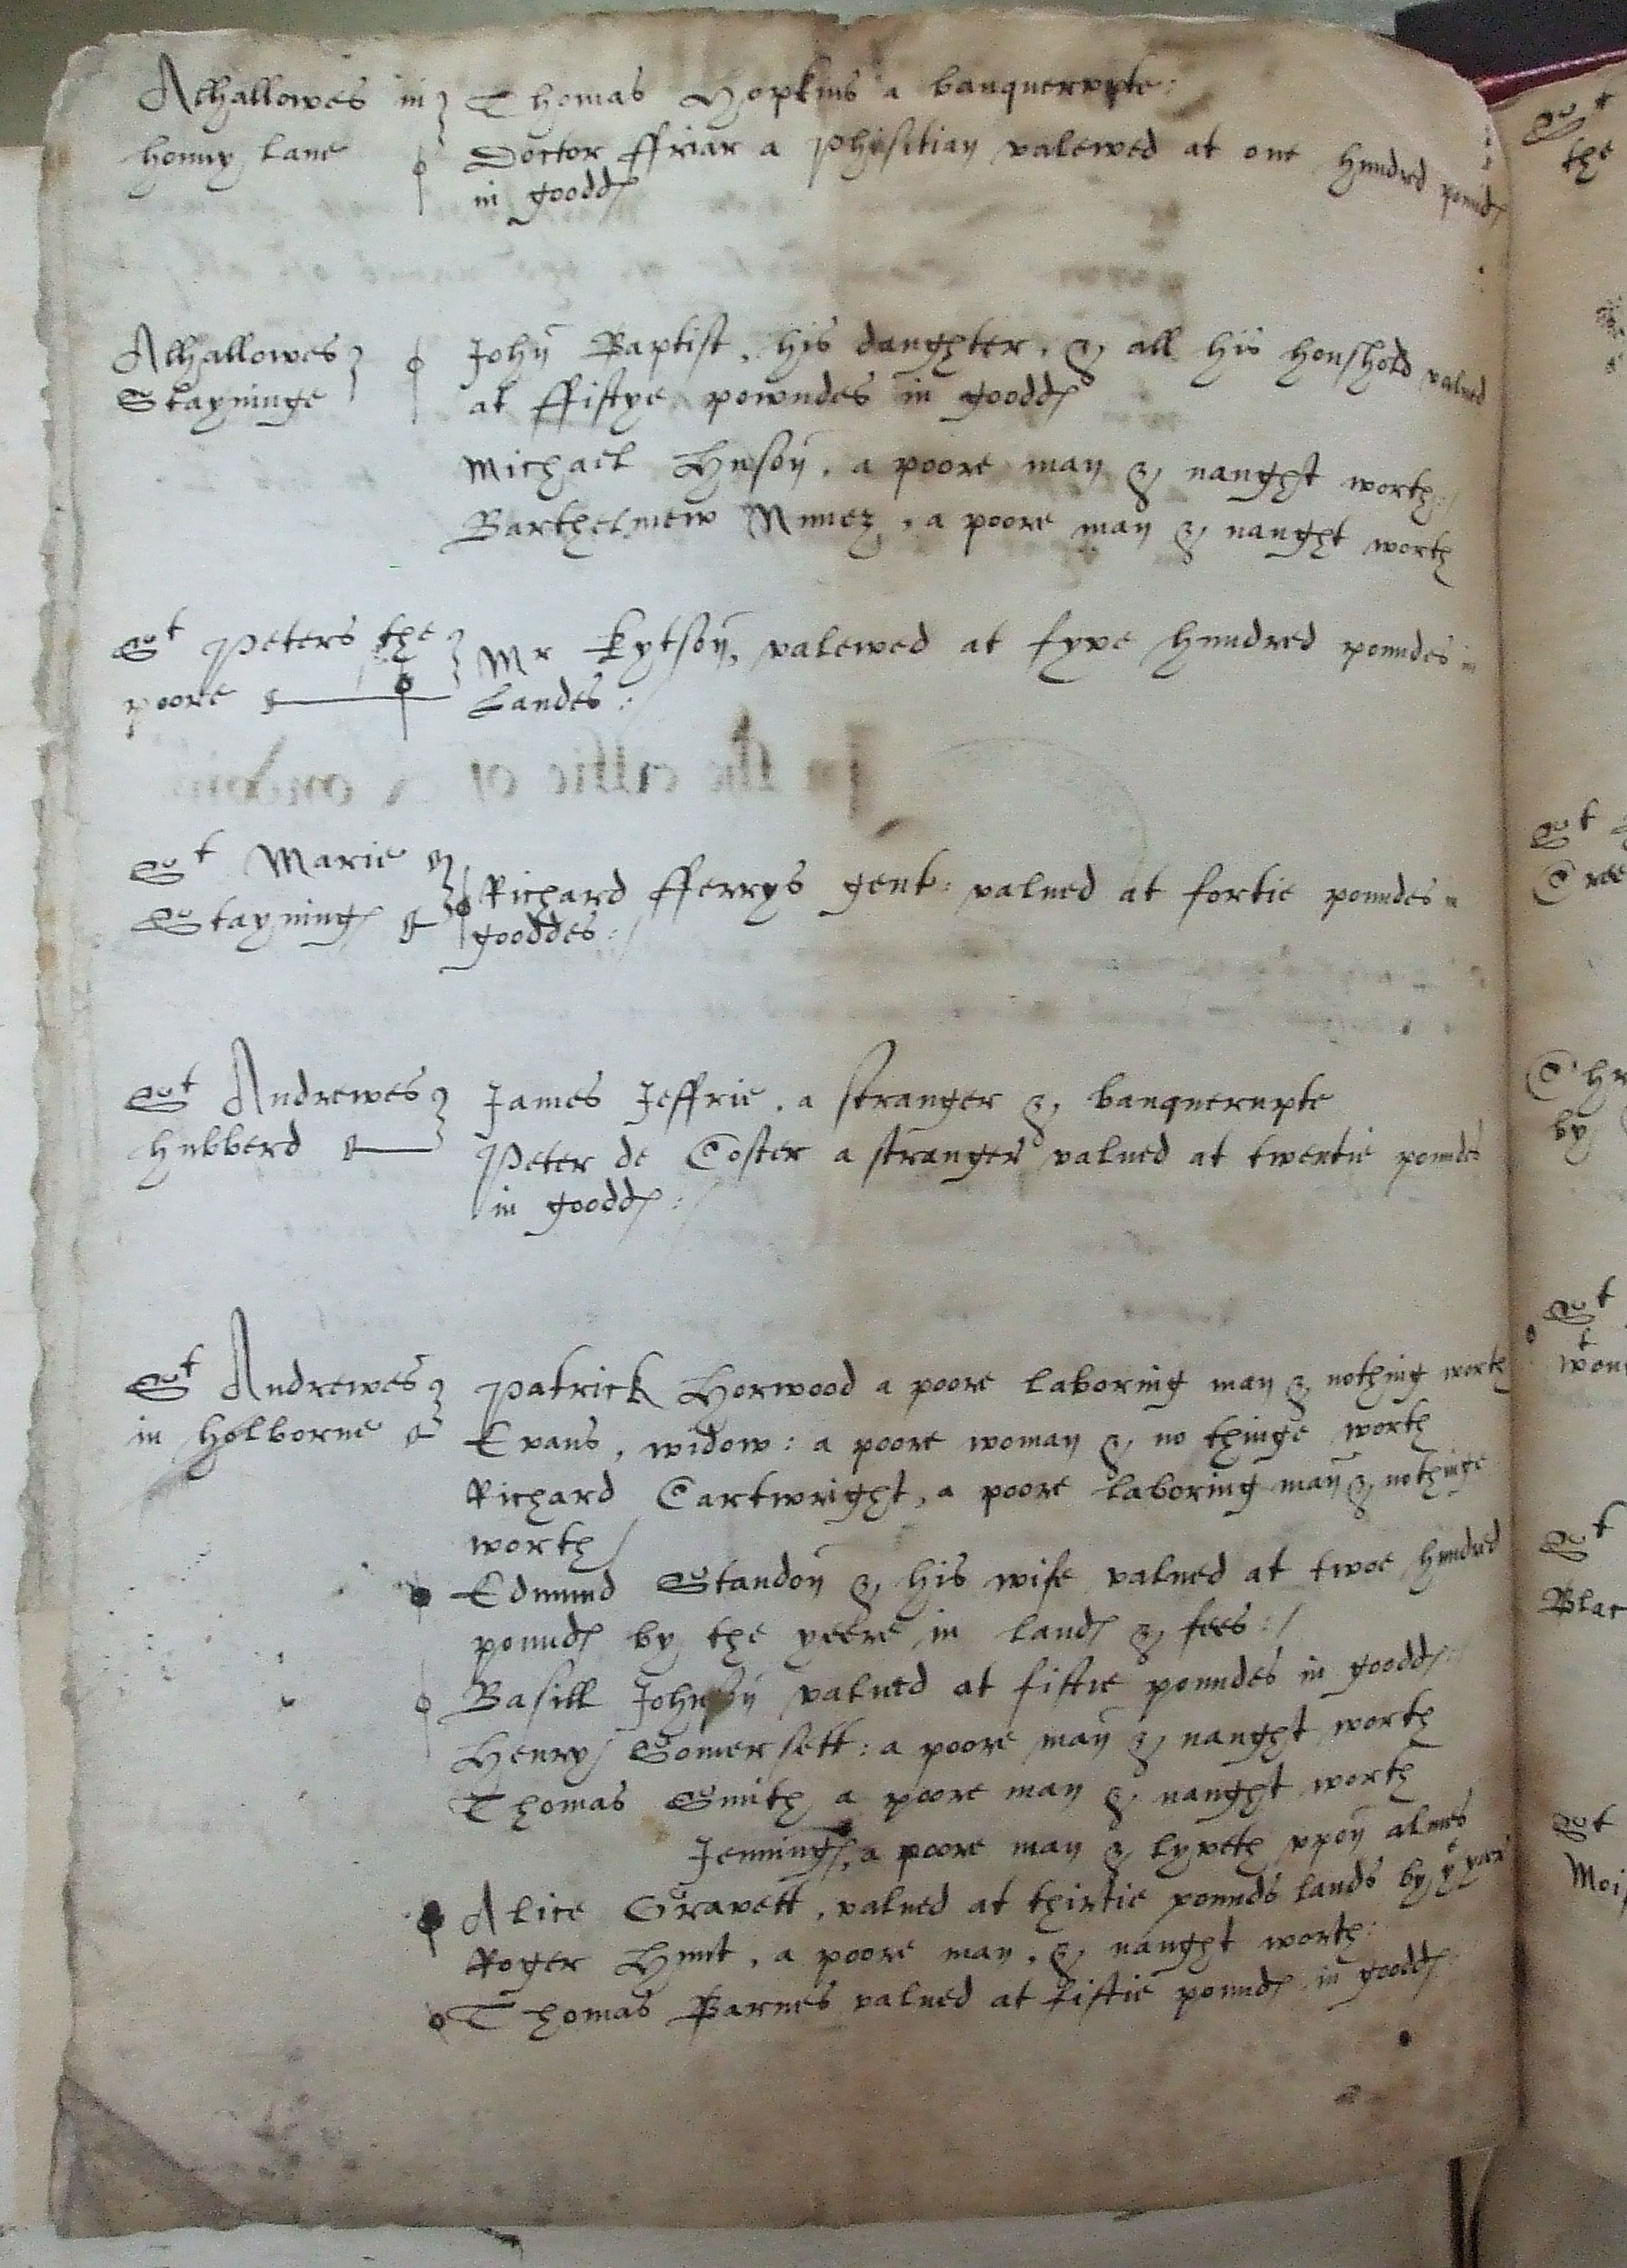 Alhallowes in Thomas Hopkins a banquerupte:
honny lane Doctor ffriar a Phisitian valewed at one hundred pound
in goodes
Alhallowes John Baptist, his daughter, & all his houshold valued
Stayninge at ffiftye powndes in goodes
Michael Huson, a poore man & naught worth:/
Barthelmew Nunez, a poore man & naught worth
St Peters the Mr Kytson, valewed at fyve hundred poundes in
poore Landes:/
In the cittie of London
St Marie Richard fferrys gent: valued at fortie poundes in
Stayninges gooddes:/
St Andrewes James Jeffrie, a stranger & banquerupte
hubberd Peter de Coster a stranger valued at twentie poundes
in goodes:/
St Andrewes Patrick Horwood a poore laboring man & nothing worth
in holborne Evans, widow: a poore woman & no thinge worth
Richard Cartwright, a poore laboring man & nothinge
worth/
Edmund Standon & his wife valued at twoe hundred
poundes by the yeere in landes & fees:/
Basill Johnson valued at fiftie poundes in goodes
Henry Somersett: a poore man & naught worth
Thomas Smith a poore man & naught worth
Jenninges, a poore man & lyveth upon almes
Alice Gravett, valued at thirtie pounds lands by ye year
Roger Hunt, a poore man, & naught worth:
Thomas Barnes valued at fiftie poundes in goodes